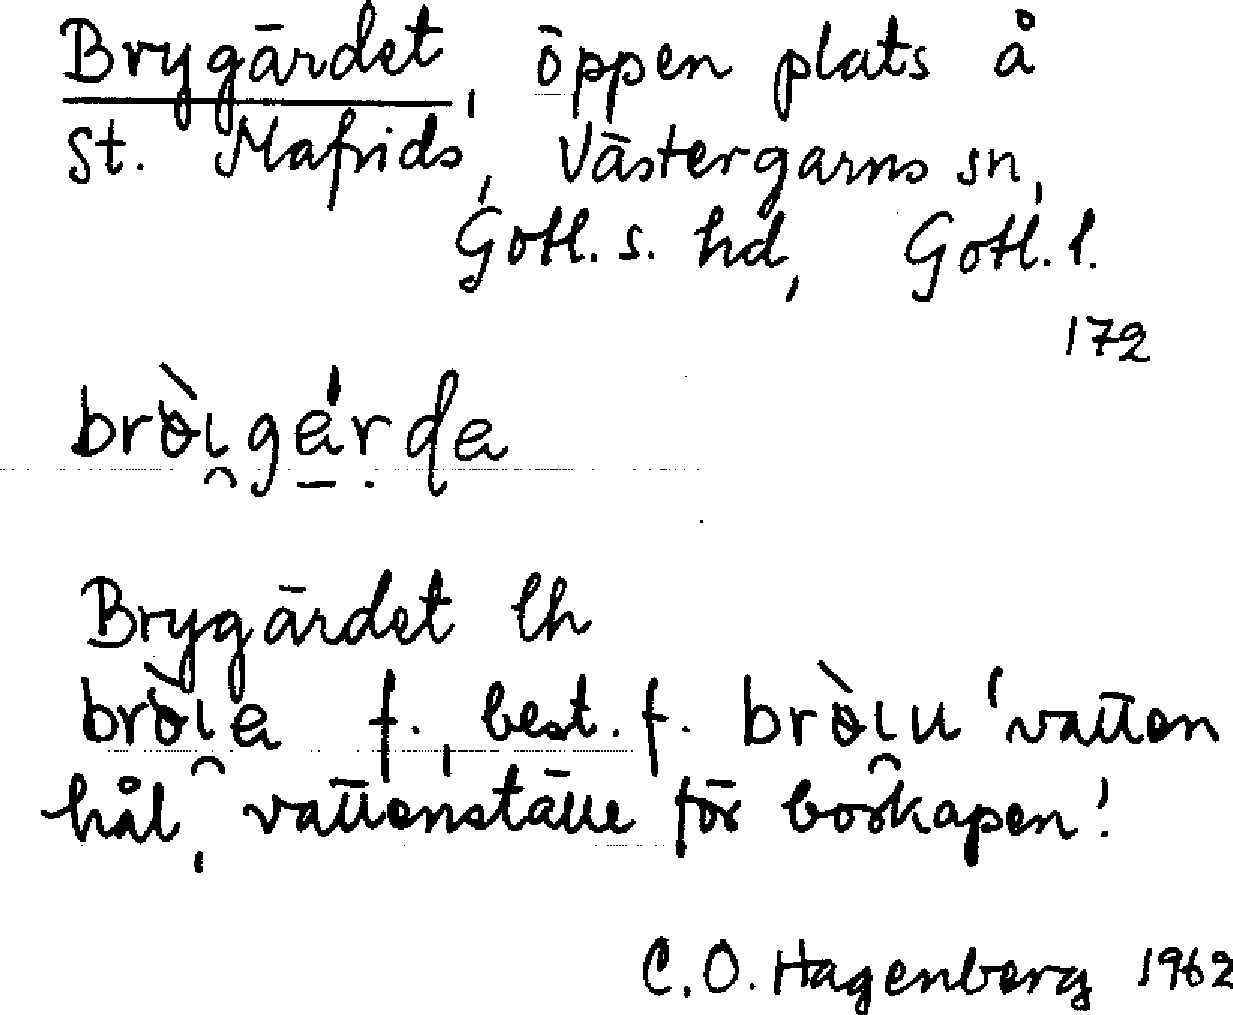 Brygärdet, öppen plats å
St. Mafrids, Västergarns sn,
Gotl. s. hd, Gotl. l.
172
Brygärdet lh
f., best. f. 'vatten
hål, vattenställe för boskapen!
C. O. Hagenberg 1962